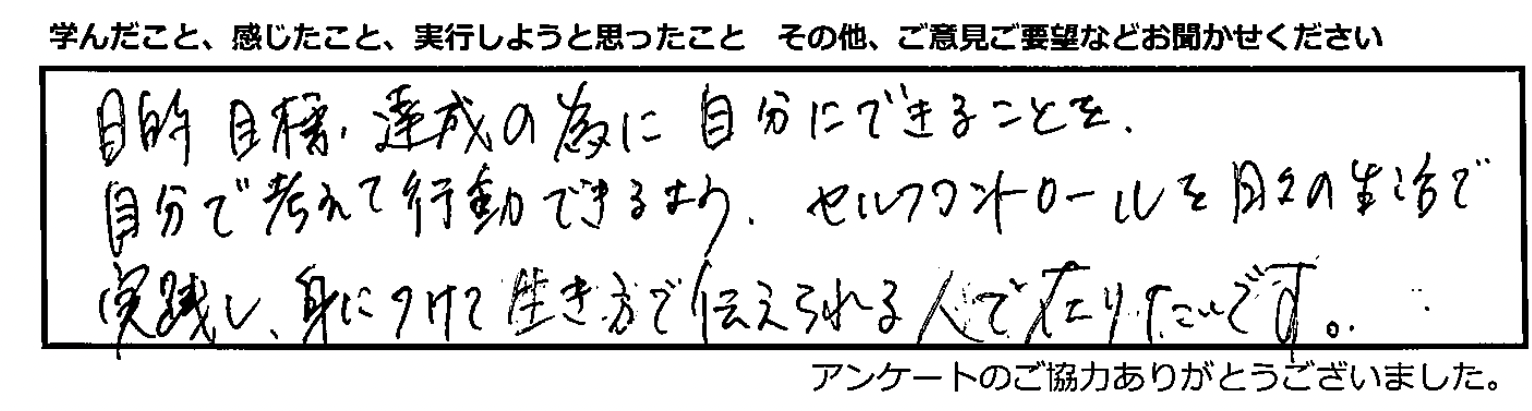 学んだこと、感じたこと、実行しようと思ったこと　その他、ご意見ご要望などお聞かせください
目的 目標、達成の為に 自分にできることを、
自分で考えて行動できるよう、セルフコントロールを日々の生活で
実践し、身につけて生き方で伝えられる人で在りたいです。
アンケートのご協力ありがとうございました。